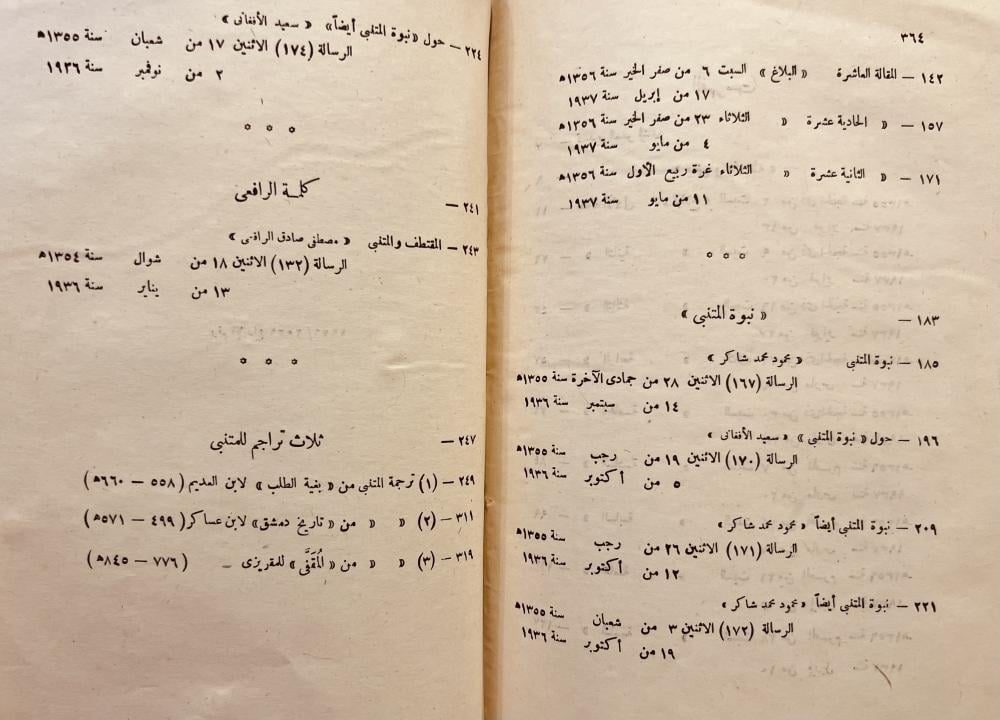 ٣٦٤
١٤٢ — المقالة العاشرة « البلاغ » السبت ٦ من صفر الخير سنة ١٣٥٦ھ
١٧ من إبريل سنة ١٩٣٧
١٥٧ — « الحادية عشرة « الثلاثاء ٢٣ من صفر الخير سنة ١٣٥٦ھ
٤ من مايو سنة ١٩٣٧
١٧١ — « الثانية عشرة « الثلاثاء غرة ربيع الأول سنة ١٣٥٦ھ
١١ من مايو سنة ١٩٣٧
١٨٣ — « نبوة المتنبي »
١٨٥ — نبوة المتنبي « محمود محمد شاكر »
الرسالة (١٦٧) الاثنين ٢٨ من جمادى الآخرة سنة ١٣٥٥ھ
١٤ من سبتمبر سنة ١٩٣٦
١٩٦ — حول « نبوة المتنبي » « سعيد الأفغانى »
الرسالة (١٧٠) الاثنين ١٩ من رجب سنة ١٣٥٥ھ
٥ من أكتوبر سنة ١٩٣٦
٢٠٩ — نبوة المتنبي أيضاً « محمود محمد شاكر »
الرسالة (١٧١) الاثنين ٢٦ من رجب سنة ١٣٥٥ھ
١٢ من أكتوبر سنة ١٩٣٦
٢٢١ — نبوة المتنبي أيضاً « محمود محمد شاكر »
الرسالة (١٧٢) الاثنين ٣ من شعبان سنة ١٣٥٥ھ
١٩ من أكتوبر سنة ١٩٣٦
٢٢٤ — حول « نبوة المتنبي أيضاً » « سعيد الأفغانى »
الرسالة (١٧٤) الاثنين ١٧ من شعبان سنة ١٣٥٥ھ
٢ من نوفمبر سنة ١٩٣٦
٢٤١ — كلمة الرافعى
٢٤٣ — المقتطف والمتنبي « مصطفى صادق الرافعى »
الرسالة (١٣٢) الاثنين ١٨ من شوال سنة ١٣٥٤ھ
١٣ من يناير سنة ١٩٣٦
٢٤٧ — ثلاث تراجم للمتنبي
٢٤٩ — (١) ترجمة المتنبي من « بغية الطلب » لابن العديم (٥٥٨ — ٦٦٠ھ)
٣١١ — (٢) « « من « تاريخ دمشق » لابن عساكر (٤٩٩ — ٥٧١ھ)
٣١٩ — (٣) « « من « المُقَفَّى » للمقريزى (٧٧٦ — ٨٤٥ھ)